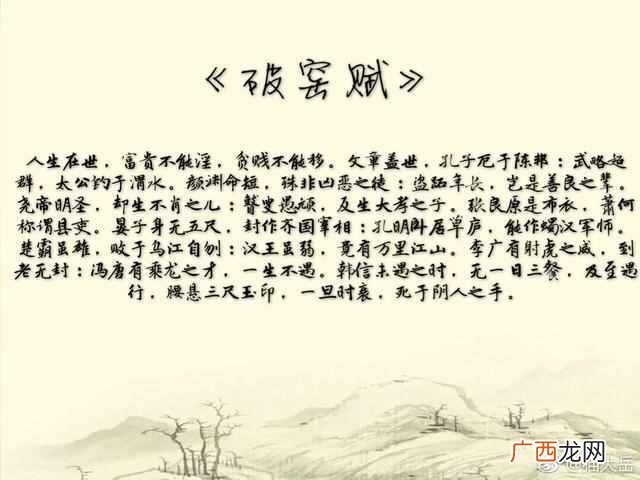 《破窑赋》
人生在世，富贵不能淫，贫贱不能移。文章盖世，孔子厄于陈邦：武略超
群，太公钓于渭水。颜渊命短，殊非凶恶之徒：盗跖年长，岂是善良之辈。
尧帝明圣，却生不肖之儿：瞽叟愚顽，反生大孝之子。张良原是布衣，萧何
称谓县吏。晏子身无五尺，封作齐国宰相：孔明卧居草庐，能作蜀汉军师。
楚霸虽雄，败于乌江自刎：汉王虽弱，竟有万里江山。李广有射虎之威，到
老无封：冯唐有乘龙之才，一生不遇。韩信未遇之时，无一日三餐，及至遇
行，腰悬三尺玉印，一旦时衰，死于阴人之手。
广西龙网